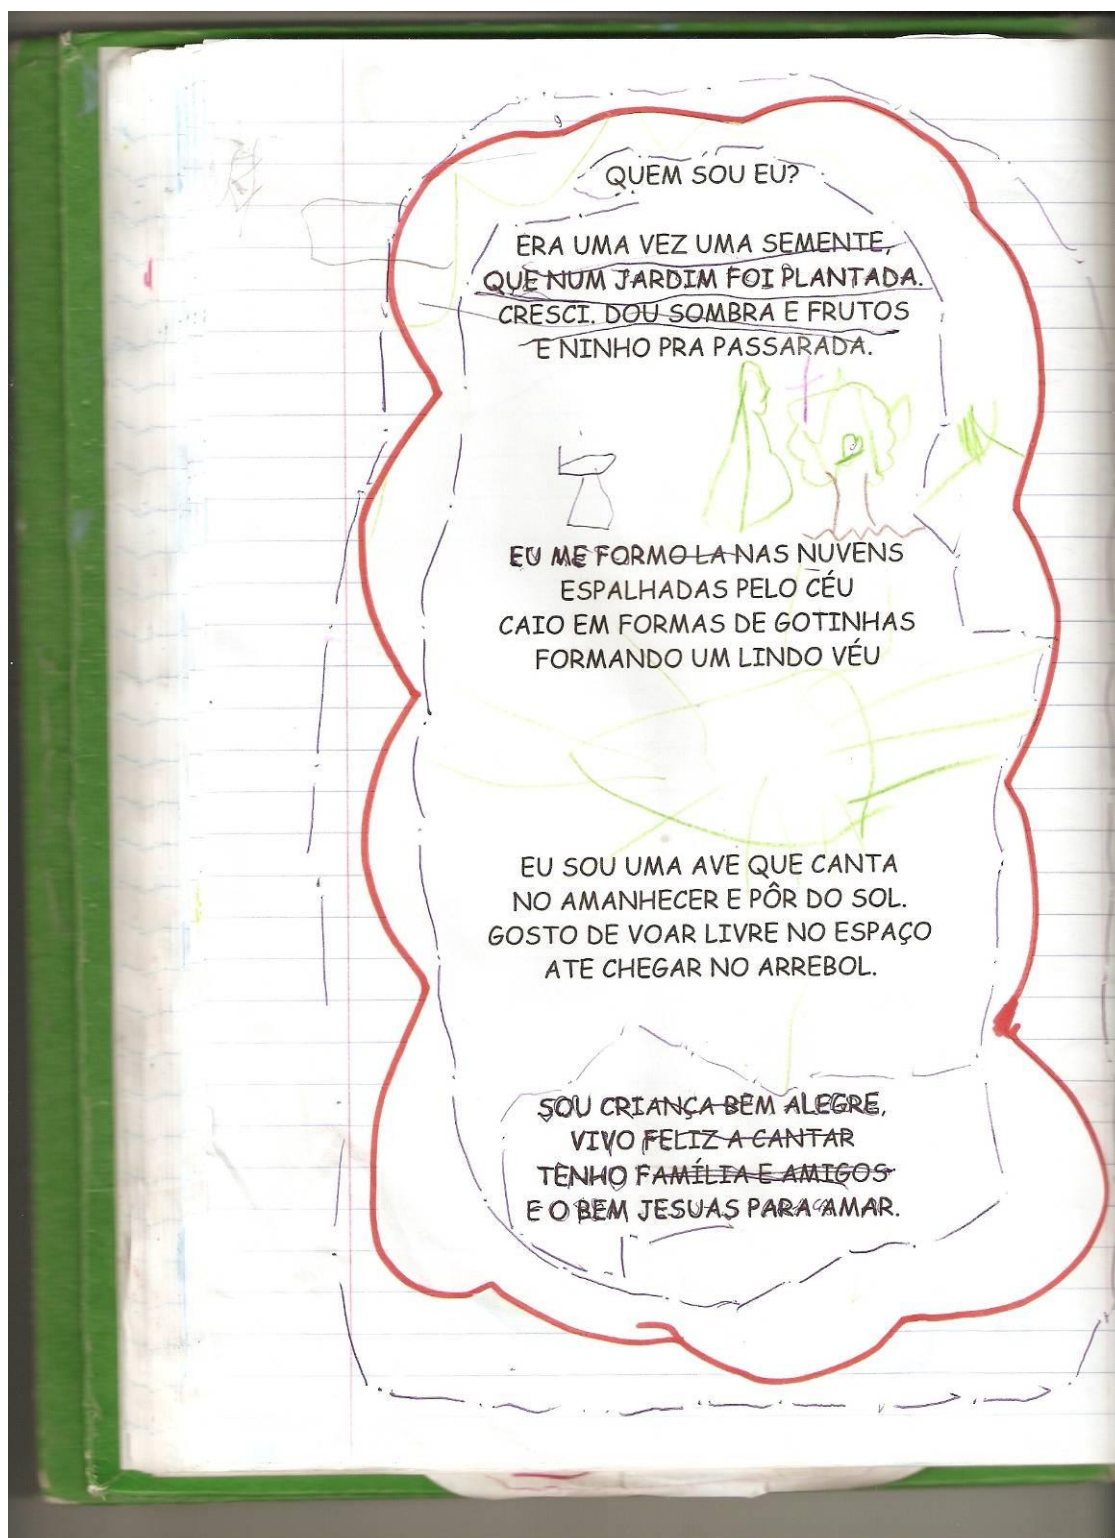 QUEM SOU EU?
ERA UMA VEZ UMA SEMENTE,
QUE NUM JARDIM FOI PLANTADA.
CRESCI. DOU SOMBRA E FRUTOS
E NINHO PRA PASSARADA.
EU ME FORMO LA NAS NUVENS
ESPALHADAS PELO CÉU
CAIO EM FORMAS DE GOTINHAS
FORMANDO UM LINDO VÉU
EU SOU UMA AVE QUE CANTA
NO AMANHECER E PÔR DO SOL.
GOSTO DE VOAR LIVRE NO ESPAÇO
ATE CHEGAR NO ARREBOL.
SOU CRIANÇA BEM ALEGRE,
VIVO FELIZ A CANTAR
TENHO FAMÍLIA E AMIGOS
E O BEM JESUAS PARA AMAR.